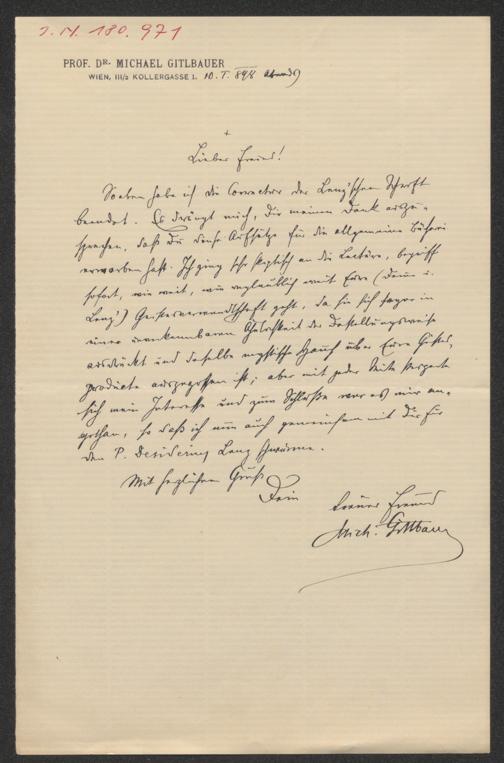 I. N. 180.971
PROF. DR. MICHAEL GITLBAUER
WIEN, III/2 KOLLERGASSE 1. 10. I. 898 Abends
+
Lieber Freund!
Soeben habe ich die Correctur der Lenz'schen Schrift
beendet. Es drängt mich, Dir meinen Dank auszu-
sprechen, daß Du diese Aufsätze für die allgemeine Bücherei
erworben hast. Ich ging sehr skeptisch an die Lectüre, begriff
sofort, wie weit, wie unglaublich weit Eure (Deine u.
Lenz') Geistesverwandtschaft geht, da sie sich sogar in
einer unverkennbaren Ähnlichkeit der Darstellungsweise
ausdrückt und dieselbe mystische Hauch über Eure Geistes-
producte ausgegossen ist; aber mit jeder Seite steigerte
sich mein Interesse und zum Schlusse war es mir an-
gethan, so daß ich nun auch gemeinsam mit Dir für
den P. Desiderius Lenz schwärme.
Mit herzlichem Gruß
Dein
treuer Freund
Mich. Gitlbauer